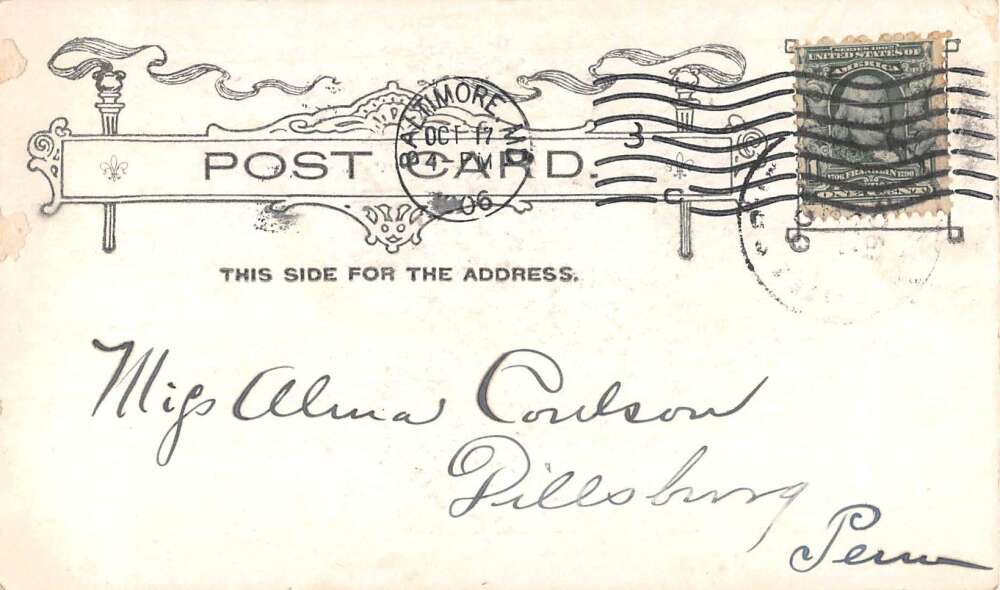 SERIES 1902
UNITED STATES OF
AMERICA
1706 FRANKLIN 1790
BALTIMORE, MD.
OCT 17
4-PM
06
3
C
POST CARD.
THIS SIDE FOR THE ADDRESS.
Miss Alma Coulson
Dillsburg
Penn